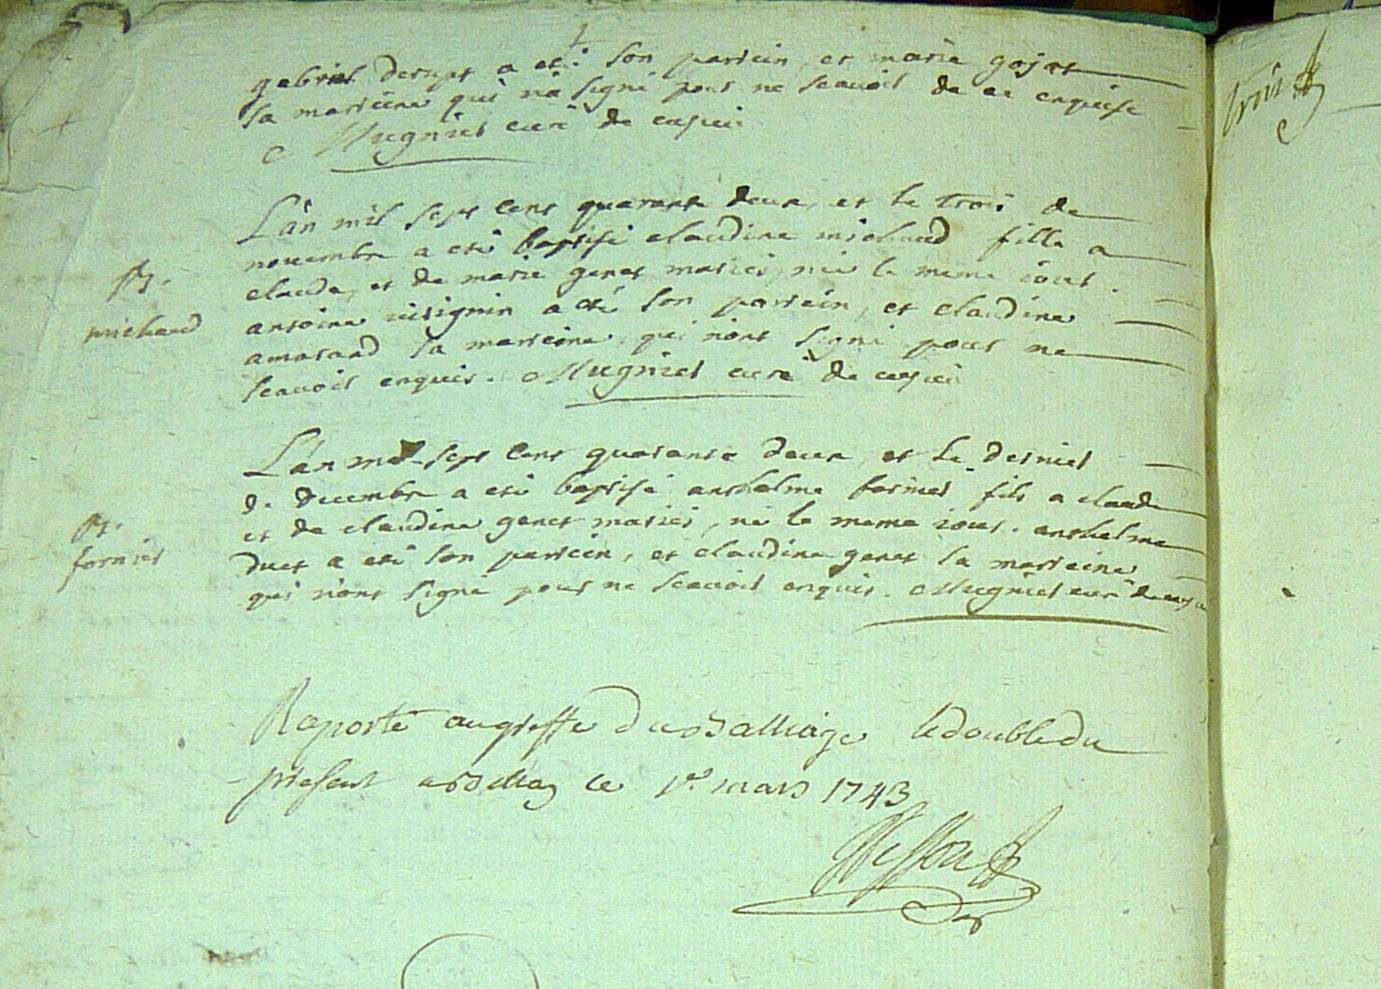 gabriel derupt a eté son parrein, et marie gojat
sa marreine qui n'a signé pour ne scavoir de ce enquise
Mugnier curé de cuzieu
L'an mil sept cent quarante deux, et le trois de
novembre a eté baptisé claudine michaud fille a
claude, et de marie genet mariés, née le meme jour.
antoine a eté son parrein, et claudine
sa marreine, qui n'ont signé pour ne
scavoir enquis. Mugnier curé de cuzieu
pt.
michaud
L'an mil sept cent quarante deux, et le dernier
de decembre a eté baptisé anthelme fornier fils a claude
et de claudine genet mariés, né le meme jour. anthelme
duet a eté son parrein, et claudine genet sa marreine
qui n'ont signé pour ne scavoir enquis. Mugnier curé de
pt.
fornier
Raporté au greffe du Balliage le double du
present a Belley le 1er mars 1743
trois